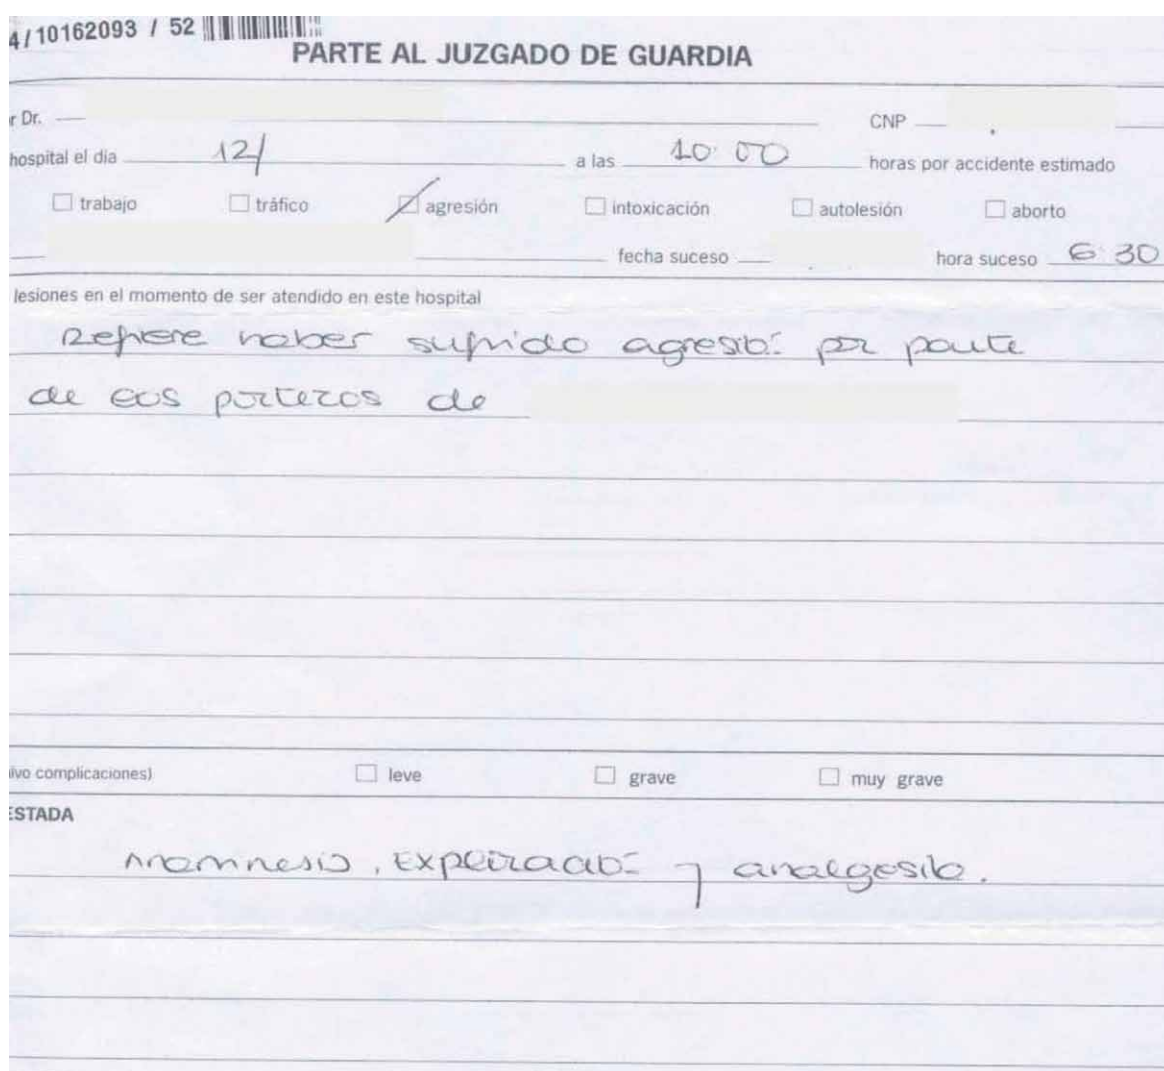 4/10162093 / 52
PARTE AL JUZGADO DE GUARDIA
r Dr. CNP
hospital el dia 12/ a las 10:00 horas por accidente estimado
trabajo tráfico agresión intoxicación autolesión aborto
fecha suceso hora suceso 6:30
lesiones en el momento de ser atendido en este hospital
Refiere haber sufrido agresió: por parte
de los porteros de
lvo complicaciones) leve grave muy grave
ESTADA
Anamnesis, Exploració: y analgesia.